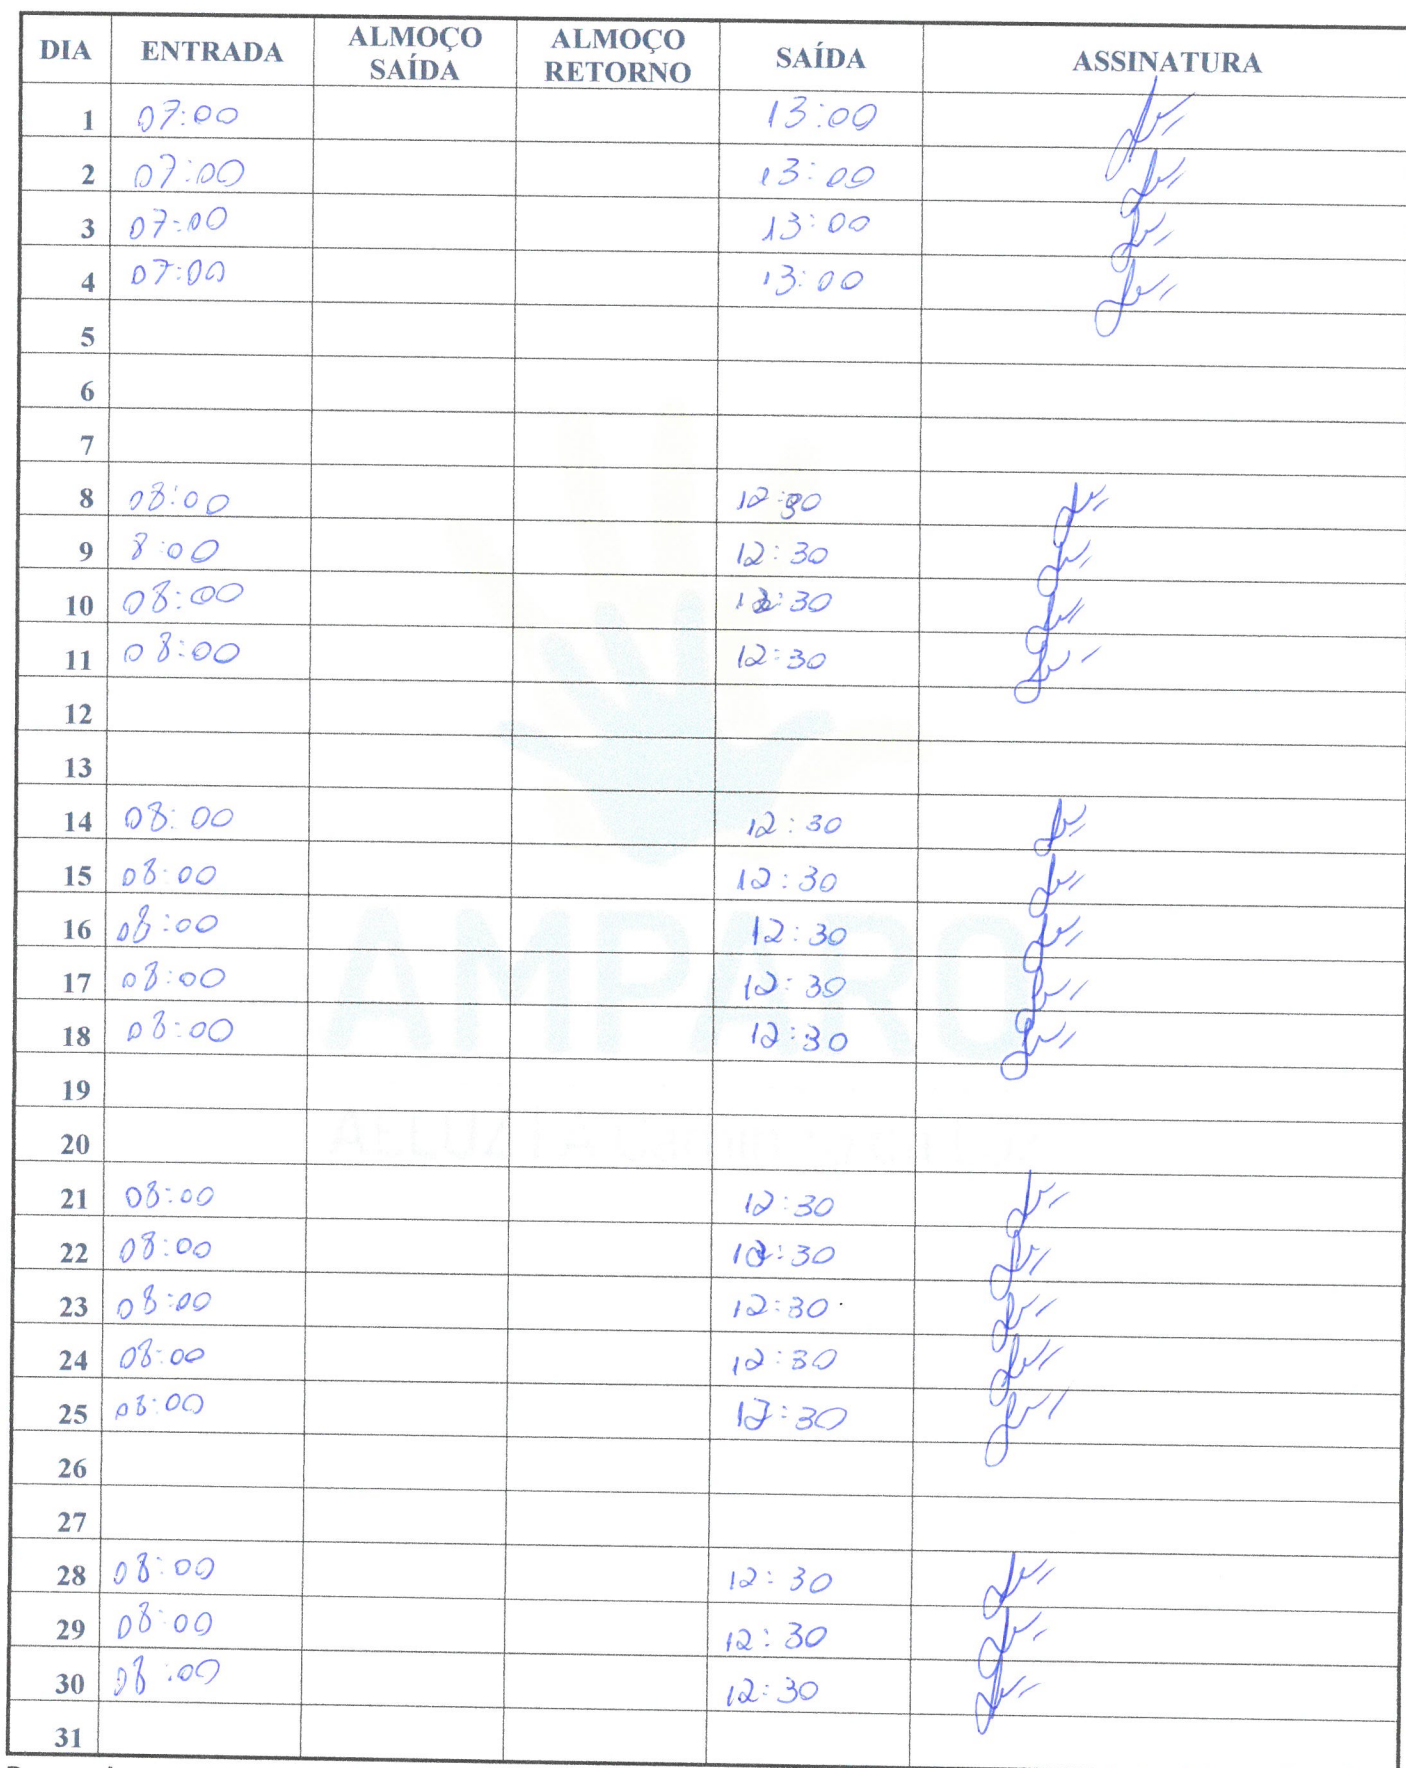 DIA ENTRADA ALMOÇO SAÍDA ALMOÇO RETORNO SAÍDA ASSINATURA
1 07:00 13:00
2 07:00 13:00
3 07:00 13:00
4 07:00 13:00
5
6
7
8 08:00 12:30
9 8:00 12:30
10 08:00 12:30
11 08:00 12:30
12
13
14 08:00 12:30
15 08:00 12:30
16 08:00 12:30
17 08:00 12:30
18 08:00 12:30
19
20
21 08:00 12:30
22 08:00 12:30
23 08:00 12:30
24 08:00 12:30
25 08:00 12:30
26
27
28 08:00 12:30
29 08:00 12:30
30 08:00 12:30
31
AMPARO